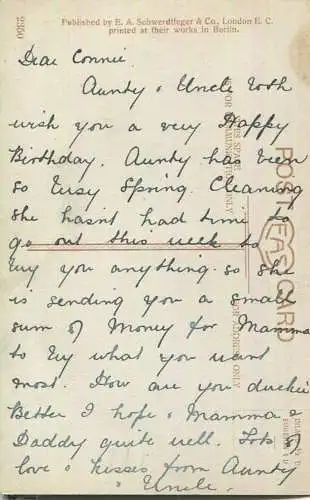 2350
Published by E. A. Schwerdtfeger & Co., London E. C.
printed at their works in Berlin.
Dear Connie.
Aunty & Uncle both
wish you a very Happy
Birthday. Aunty has been
so busy Spring Cleaning
she hasn't had time to
go out this week to
buy you anything. so she
is sending you a small
sum of Money for Mamma
to buy what you want
most. How are you duckie
Better I hope & Mamma &
Daddy quite well. Lots of
love & kisses from Aunty
& Uncle.
POST CARD
EAS
FOR ADDRESS ONLY